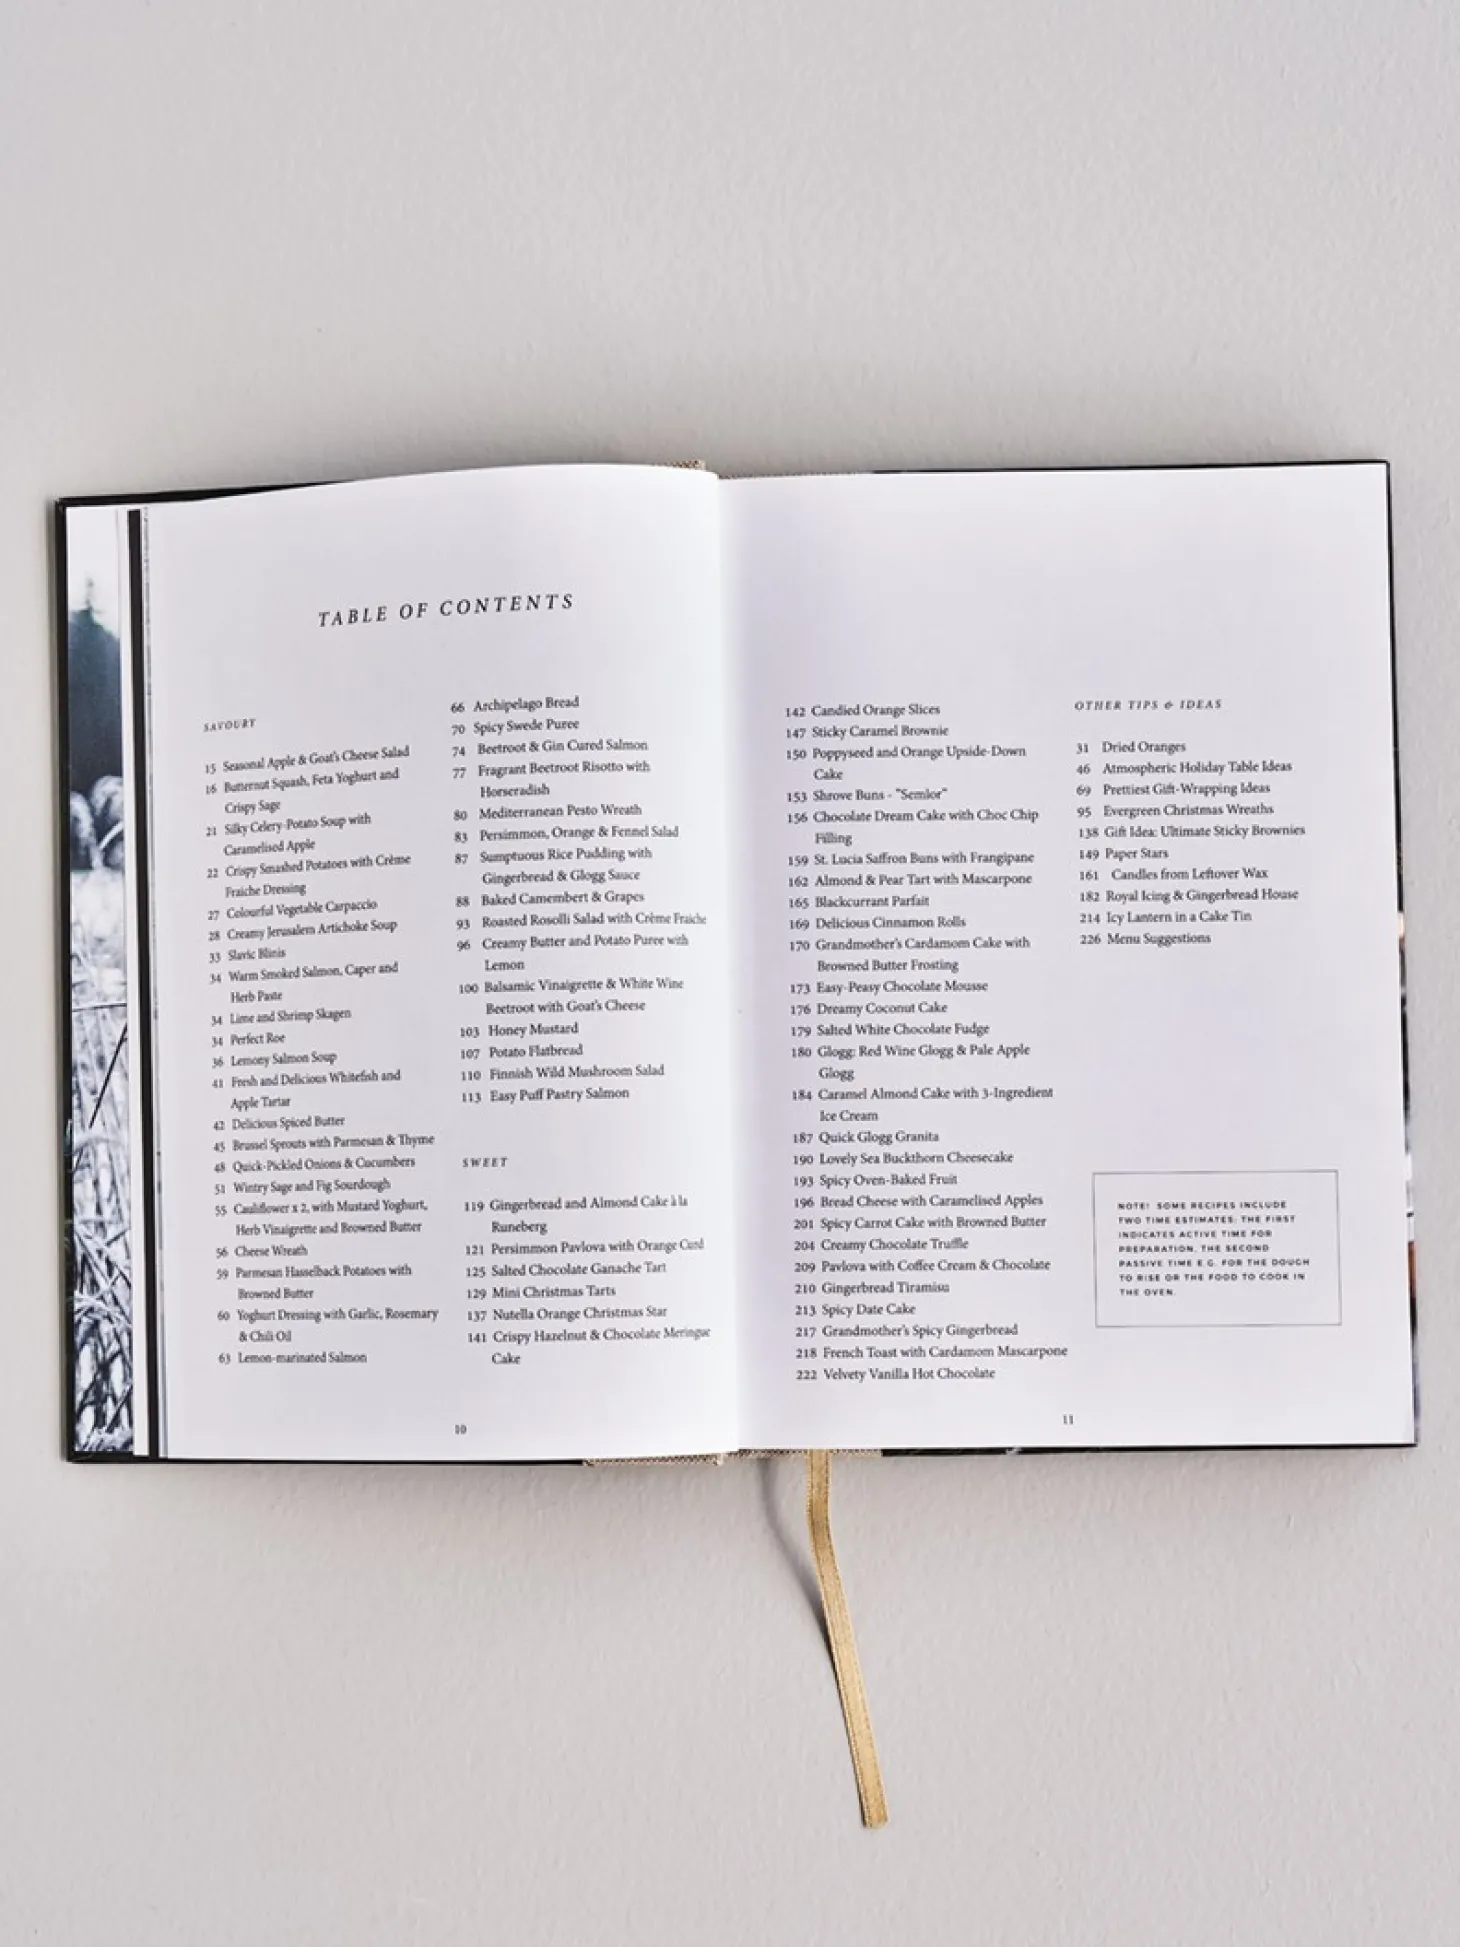 TABLE OF CONTENTS
SAVOURY
15 Seasonal Apple & Goat's Cheese Salad
16 Butternut Squash, Feta Yoghurt and
Crispy Sage
21 Silky Celery-Potato Soup with
Caramelised Apple
22 Crispy Smashed Potatoes with Crème
Fraiche Dressing
27 Colourful Vegetable Carpaccio
28 Creamy Jerusalem Artichoke Soup
33 Slavic Blinis
34 Warm Smoked Salmon, Caper and
Herb Paste
34 Lime and Shrimp Skagen
34 Perfect Roe
36 Lemony Salmon Soup
41 Fresh and Delicious Whitefish and
Apple Tartar
42 Delicious Spiced Butter
45 Brussel Sprouts with Parmesan & Thyme
48 Quick-Pickled Onions & Cucumbers
51 Wintry Sage and Fig Sourdough
55 Cauliflower x 2, with Mustard Yoghurt,
Herb Vinaigrette and Browned Butter
56 Cheese Wreath
59 Parmesan Hasselback Potatoes with
Browned Butter
60 Yoghurt Dressing with Garlic, Rosemary
& Chili Oil
63 Lemon-marinated Salmon
66 Archipelago Bread
70 Spicy Swede Puree
74 Beetroot & Gin Cured Salmon
77 Fragrant Beetroot Risotto with
Horseradish
80 Mediterranean Pesto Wreath
83 Persimmon, Orange & Fennel Salad
87 Sumptuous Rice Pudding with
Gingerbread & Glogg Sauce
88 Baked Camembert & Grapes
93 Roasted Rosolli Salad with Crème Fraiche
96 Creamy Butter and Potato Puree with
Lemon
100 Balsamic Vinaigrette & White Wine
Beetroot with Goat's Cheese
103 Honey Mustard
107 Potato Flatbread
110 Finnish Wild Mushroom Salad
113 Easy Puff Pastry Salmon
SWEET
119 Gingerbread and Almond Cake à la
Runeberg
121 Persimmon Pavlova with Orange Curd
125 Salted Chocolate Ganache Tart
129 Mini Christmas Tarts
137 Nutella Orange Christmas Star
141 Crispy Hazelnut & Chocolate Meringue
Cake
10
142 Candied Orange Slices
147 Sticky Caramel Brownie
150 Poppyseed and Orange Upside-Down
Cake
153 Shrove Buns - "Semlor"
156 Chocolate Dream Cake with Choc Chip
Filling
159 St. Lucia Saffron Buns with Frangipane
162 Almond & Pear Tart with Mascarpone
165 Blackcurrant Parfait
169 Delicious Cinnamon Rolls
170 Grandmother's Cardamom Cake with
Browned Butter Frosting
173 Easy-Peasy Chocolate Mousse
176 Dreamy Coconut Cake
179 Salted White Chocolate Fudge
180 Glogg: Red Wine Glogg & Pale Apple
Glogg
184 Caramel Almond Cake with 3-Ingredient
Ice Cream
187 Quick Glogg Granita
190 Lovely Sea Buckthorn Cheesecake
193 Spicy Oven-Baked Fruit
196 Bread Cheese with Caramelised Apples
201 Spicy Carrot Cake with Browned Butter
204 Creamy Chocolate Truffle
209 Pavlova with Coffee Cream & Chocolate
210 Gingerbread Tiramisu
213 Spicy Date Cake
217 Grandmother's Spicy Gingerbread
218 French Toast with Cardamom Mascarpone
222 Velvety Vanilla Hot Chocolate
OTHER TIPS & IDEAS
31 Dried Oranges
46 Atmospheric Holiday Table Ideas
69 Prettiest Gift-Wrapping Ideas
95 Evergreen Christmas Wreaths
138 Gift Idea: Ultimate Sticky Brownies
149 Paper Stars
161 Candles from Leftover Wax
182 Royal Icing & Gingerbread House
214 Icy Lantern in a Cake Tin
226 Menu Suggestions
NOTE! SOME RECIPES INCLUDE
TWO TIME ESTIMATES: THE FIRST
INDICATES ACTIVE TIME FOR
PREPARATION, THE SECOND
PASSIVE TIME E.G. FOR THE DOUGH
TO RISE OR THE FOOD TO COOK IN
THE OVEN.
11